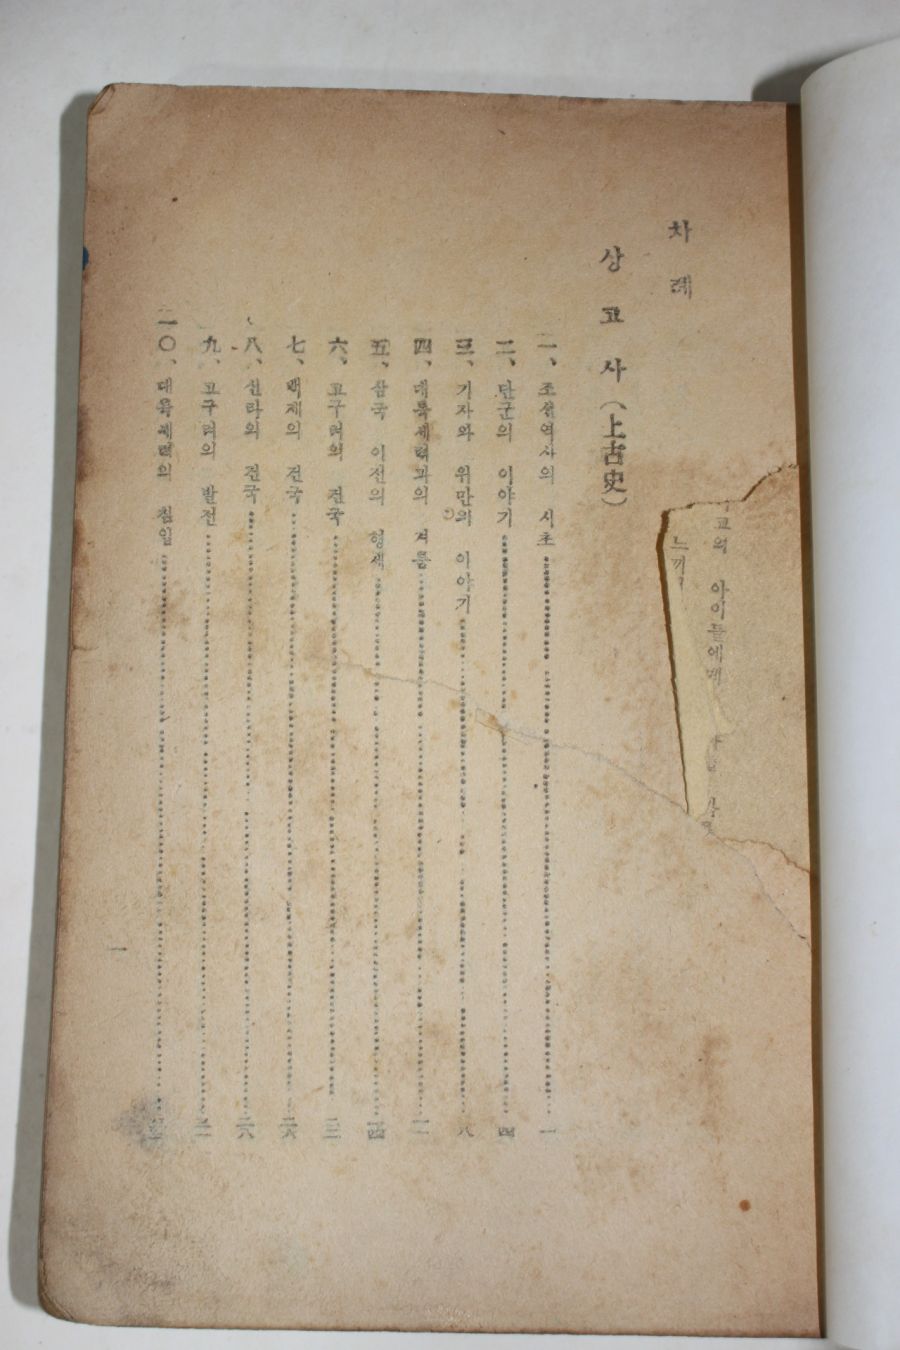 차례
상고사(上古史)
一、조선역사의 시초 一
二、단군의 이야기 四
三、기자와 위만의 이야기 八
四、대륙세력과의 겨룸
五、삼국 이전의 형세 一四
六、고구려의 건국
七、백제의 건국 二六
八、신라의 건국 二八
九、고구려의 발전
一〇、대륙세력의 침입
一
아이들에게
느끼